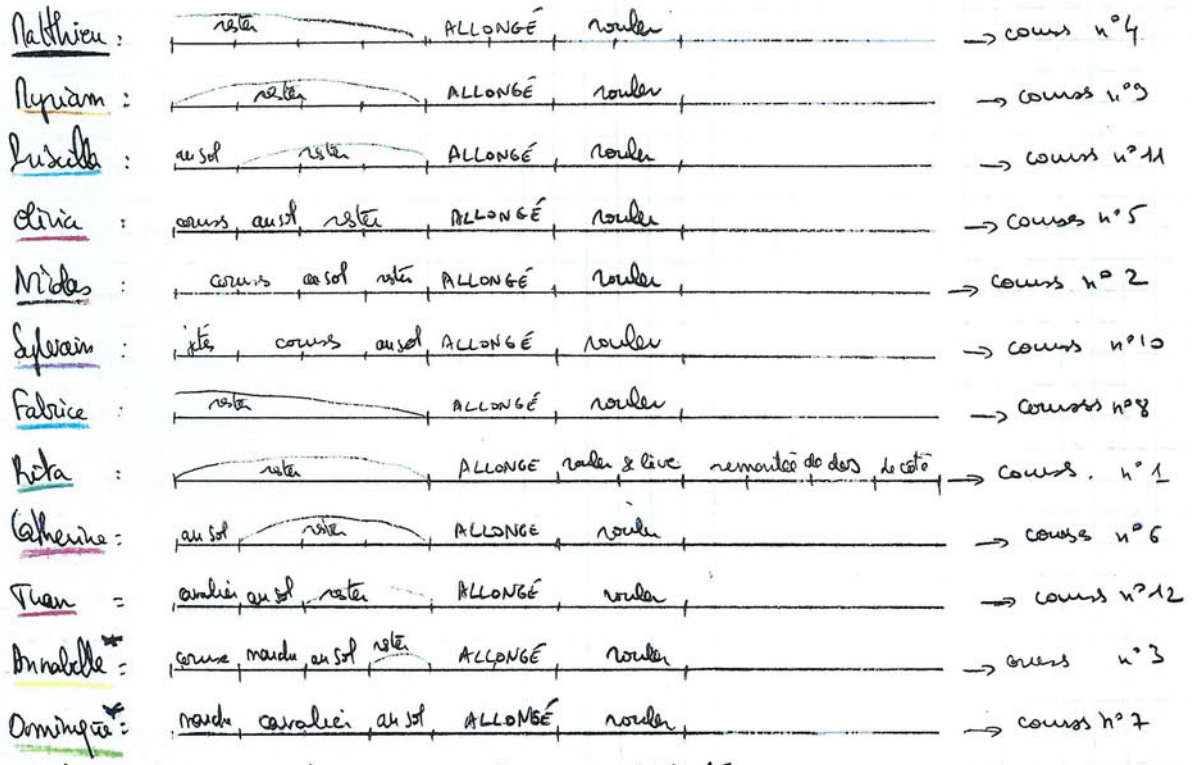 Matthieu : rester ALLONGÉ rouler → courses n° 4
Myriam : rester ALLONGÉ rouler → courses n° 9
Priscilla : au sol rester ALLONGÉ rouler → courses n° 11
Olivia : courses au sol rester ALLONGÉ rouler → courses n° 5
Nicolas : courses au sol rester ALLONGÉ rouler → courses n° 2
Sylvain : jetés courses au sol ALLONGÉ rouler → courses n° 10
Fabrice : rester ALLONGÉ rouler → courses n° 8
Rita : rester ALLONGÉ rouler & lève remontée de dos de coté → courses. n° 1
Catherine : au sol rester ALLONGÉ rouler → courses n° 6
Thean = cavalier au sol rester ALLONGÉ rouler → courses n° 12
Annabelle* = course marche au sol rester ALLONGÉ rouler → courses n° 3
Dominique* : marche cavalier au sol ALLONGÉ rouler → courses n° 7